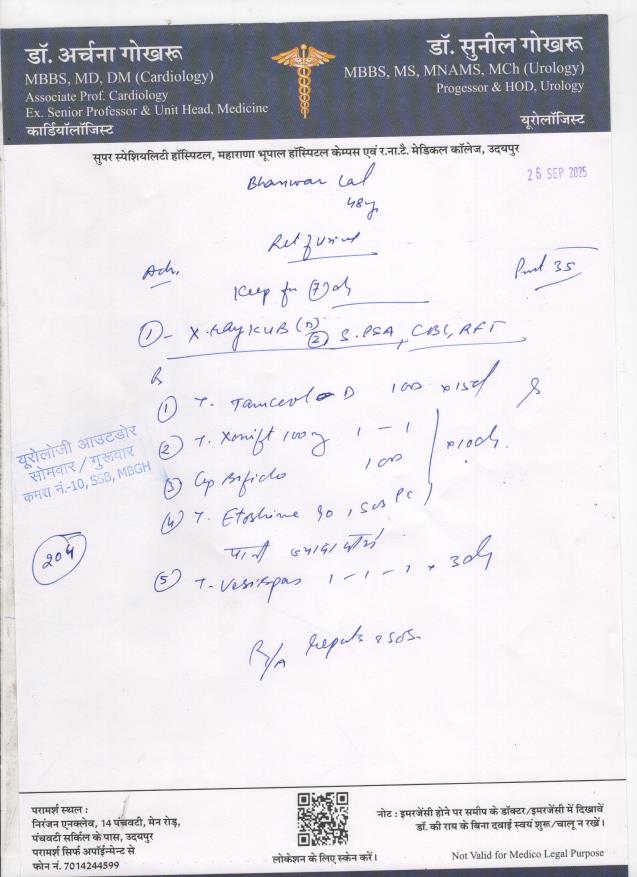 डॉ. अर्चना गोखरू
MBBS, MD, DM (Cardiology)
Associate Prof. Cardiology
Ex. Senior Professor & Unit Head, Medicine
कार्डियॉलॉजिस्ट
डॉ. सुनील गोखरू
MBBS, MS, MNAMS, MCh (Urology)
Progessor & HOD, Urology
यूरोलॉजिस्ट
सुपर स्पेशियलिटी हॉस्पिटल, महाराणा भूपाल हॉस्पिटल केम्पस एवं र.ना.टै. मेडिकल कॉलेज, उदयपुर
26 SEP 2025
Bhanwar Lal
48y
Ret of urine
Adv.
Keep for 7 d
① - X-ray KUB ② S. PSA, CBC, RFT
R
① T. D 100 x 15d
② T. 100mg 1 - 1
③ Cap Bifido 100
x 10d
④ T. 90, SOS PC
पानी
⑤ T. 1 - 1 - 1 x 3d
R/A Reports & SOS
यूरोलोजी आउटडोर
सोमवार / गुरूवार
कमरा नं.-10, SSB, MBGH
204
परामर्श स्थल :
निरंजन एनक्लेव, 14 पंचवटी, मेन रोड़,
पंचवटी सर्किल के पास, उदयपुर
परामर्श सिर्फ अपॉईन्मेन्ट से
फोन नं. 7014244599
लोकेशन के लिए स्केन करें।
नोट : इमरजेंसी होने पर समीप के डॉक्टर/इमरजेंसी में दिखावें
डॉ. की राय के बिना दवाई स्वयं शुरू/चालू न रखें।
Not Valid for Medico Legal Purpose